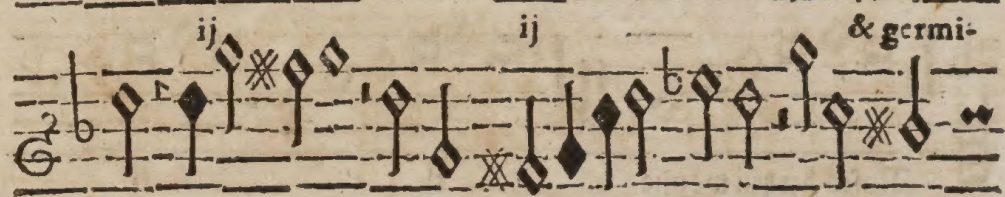 ij ij & germi-